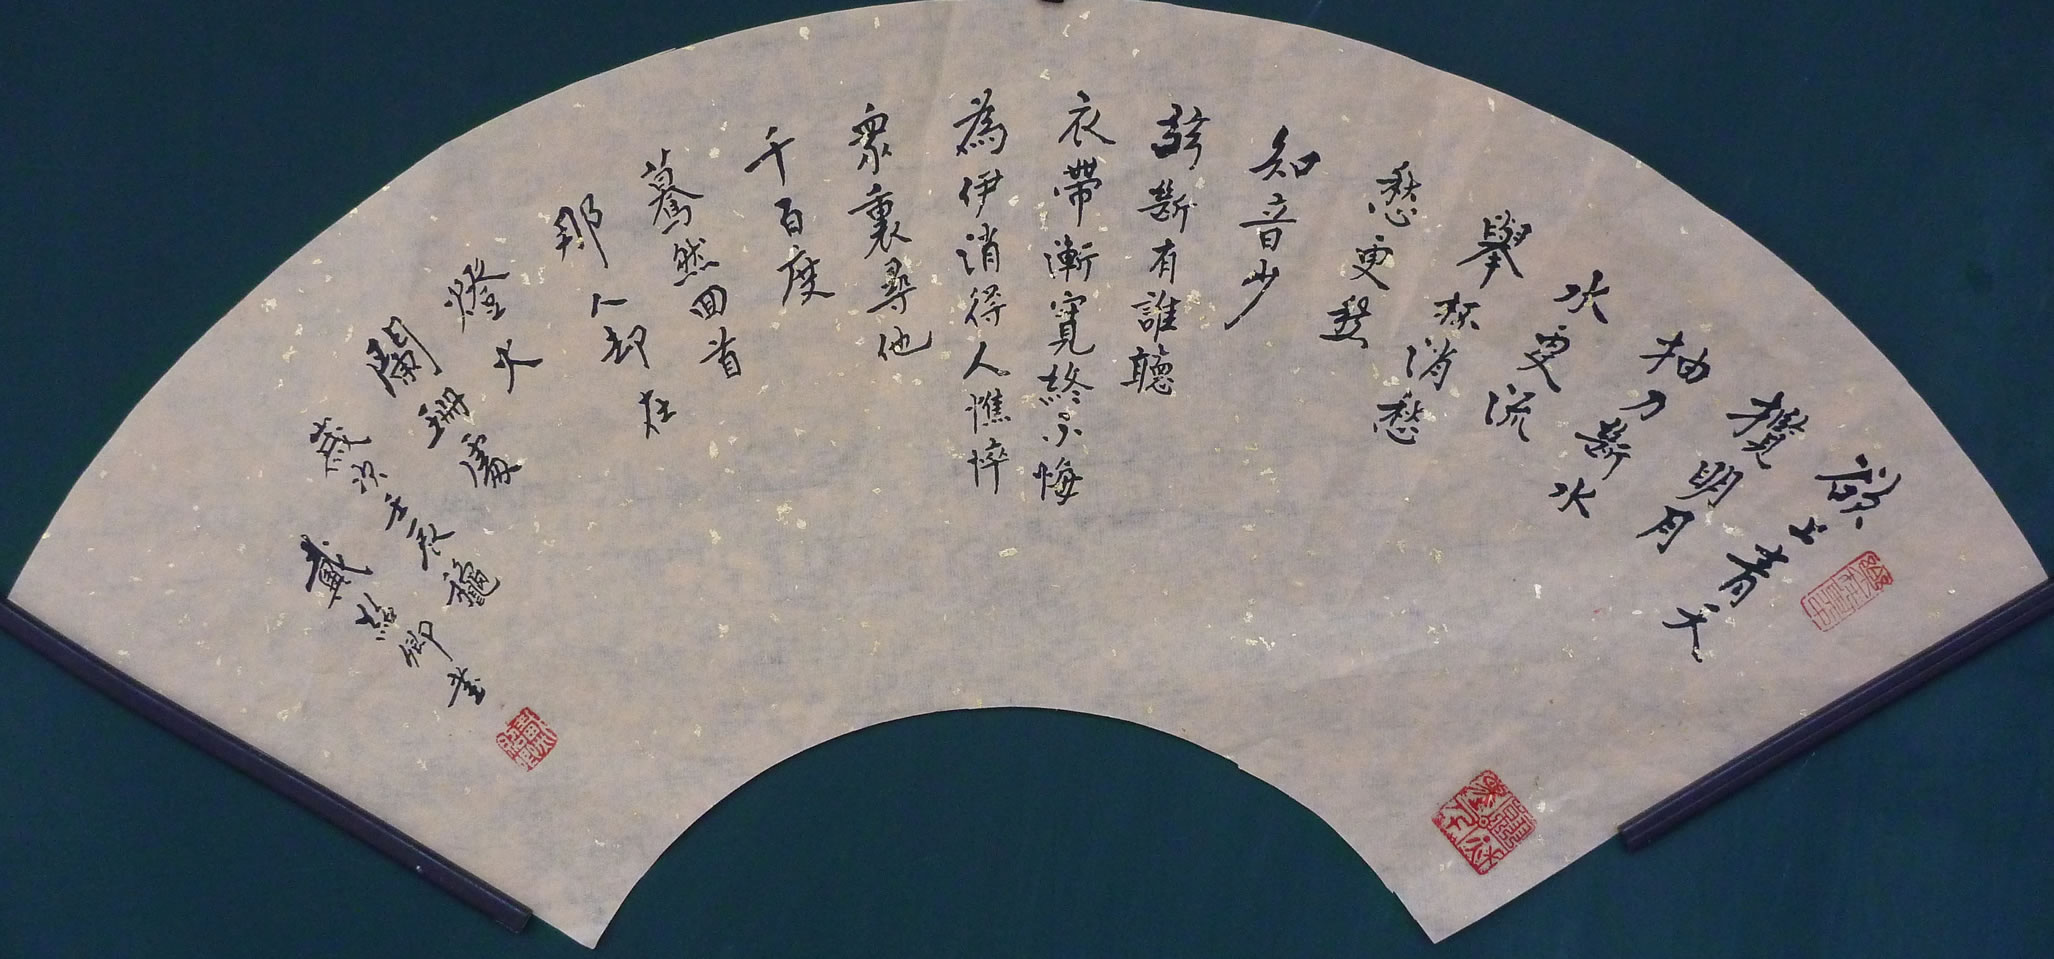 欲上青天
攬明月
抽刀斷水
水更流
舉杯消愁
愁更愁
知音少
弦斷有誰聽
衣帶漸寬終不悔
為伊消得人憔悴
眾裏尋他
千百度
驀然回首
那人却在
燈火
闌珊處
歲次壬辰龝
戴卿書